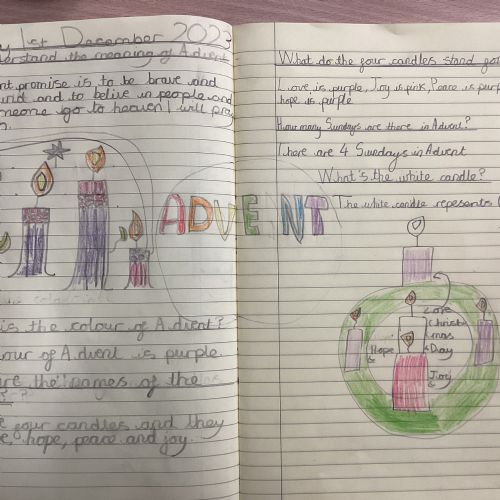 y 1st December 2023
derstand the meaning of Advent
nt promise is to be brave and
ind and to belive in people and
meone go to heaven I will pray
n.
ADVENT
is the colour of Advent?
our of Advent is purple
are the names of the
e four candles and they
e, hope, peace and joy.
What do the four candles stand for
Love is purple, Joy is pink, Peace is purp
hope is purple
How many Sundays are there in Advent?
There are 4 Sundays in Advent
What's the white candle?
The white candle repesents
Love
Christ
mas
Day
Hope
Joy